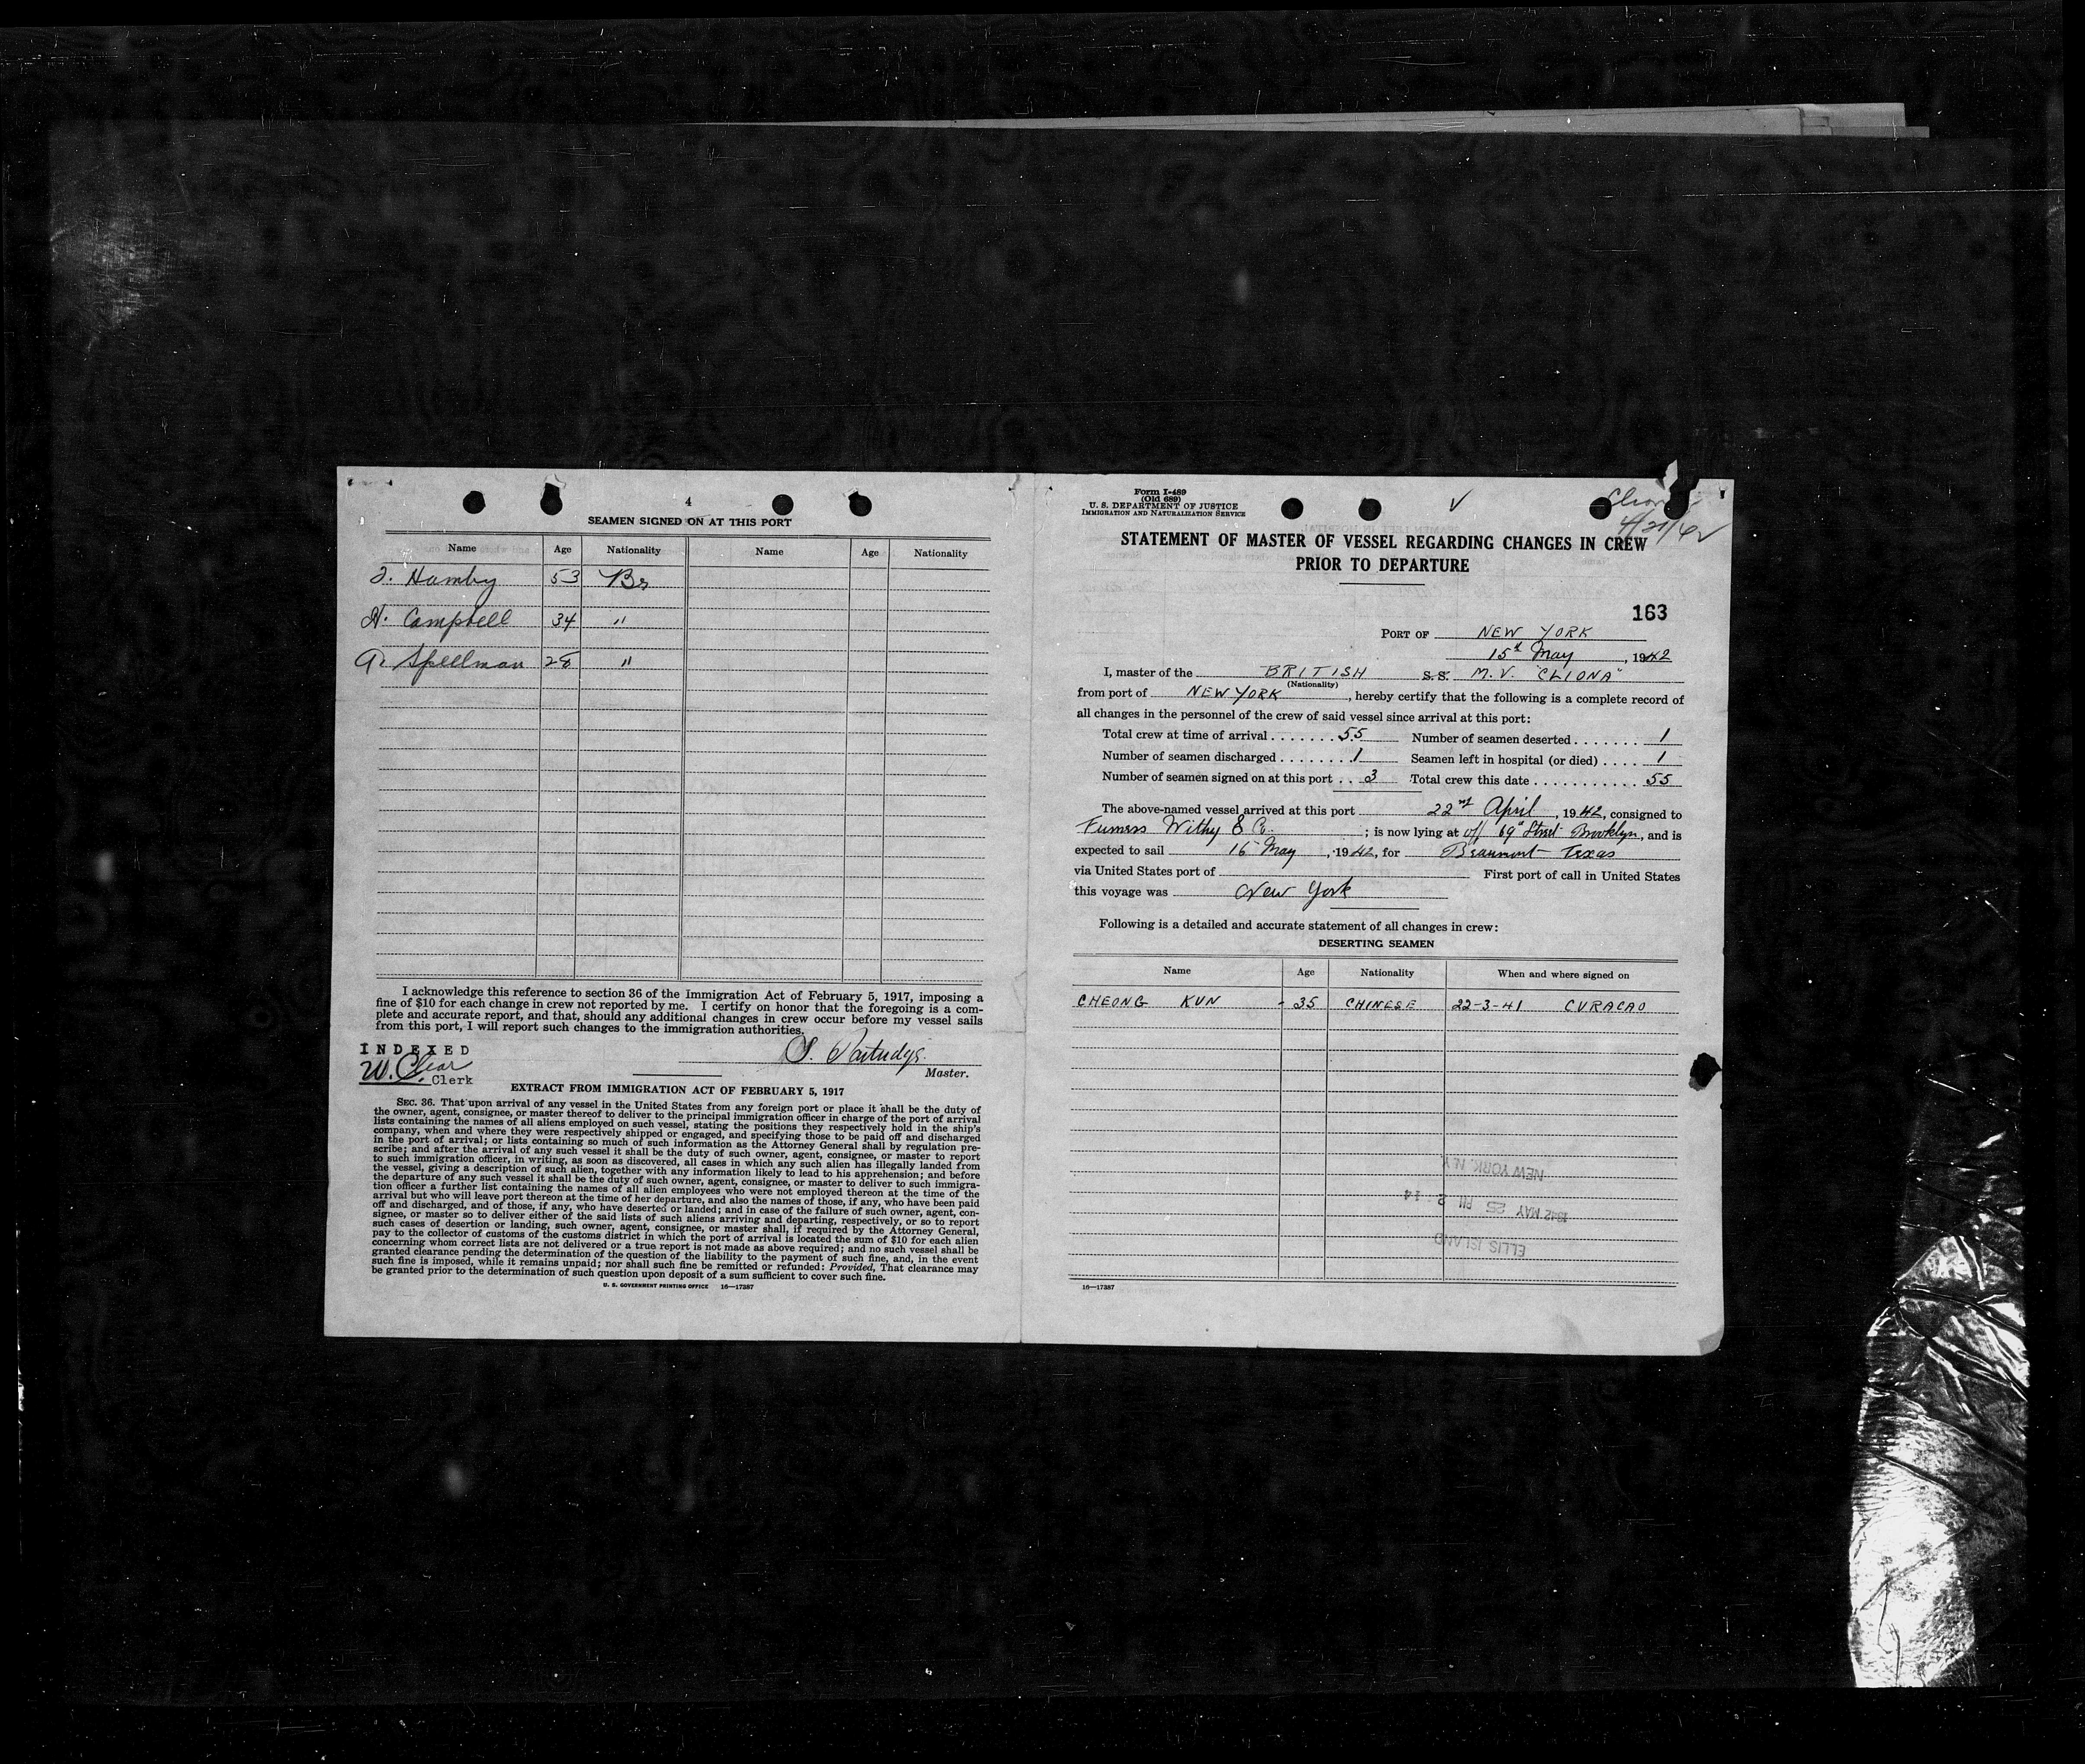 4
SEAMEN SIGNED ON AT THIS PORT
Name Age Nationality Name Age Nationality
Hamby 53 Br
H. Campbell 34 "
Spellman 28 "
I acknowledge this reference to section 36 of the Immigration Act of February 5, 1917, imposing a
fine of $10 for each change in crew not reported by me. I certify on honor that the foregoing is a com-
plete and accurate report, and that, should any additional changes in crew occur before my vessel sails
from this port, I will report such changes to the immigration authorities.
INDEXED
W. Clear Clerk
S. Partridge.
Master.
EXTRACT FROM IMMIGRATION ACT OF FEBRUARY 5, 1917
SEC. 36. That upon arrival of any vessel in the United States from any foreign port or place it shall be the duty of
the owner, agent, consignee, or master thereof to deliver to the principal immigration officer in charge of the port of arrival
lists containing the names of all aliens employed on such vessel, stating the positions they respectively hold in the ship's
company, when and where they were respectively shipped or engaged, and specifying those to be paid off and discharged
in the port of arrival; or lists containing so much of such information as the Attorney General shall by regulation pre-
scribe; and after the arrival of any such vessel it shall be the duty of such owner, agent, consignee, or master to report
to such immigration officer, in writing, as soon as discovered, all cases in which any such alien has illegally landed from
the vessel, giving a description of such alien, together with any information likely to lead to his apprehension; and before
the departure of any such vessel it shall be the duty of such owner, agent, consignee, or master to deliver to such immigra-
tion officer a further list containing the names of all alien employees who were not employed thereon at the time of the
arrival but who will leave port thereon at the time of her departure, and also the names of those, if any, who have been paid
off and discharged, and of those, if any, who have deserted or landed; and in case of the failure of such owner, agent, con-
signee, or master so to deliver either of the said lists of such aliens arriving and departing, respectively, or so to report
such cases of desertion or landing, such owner, agent, consignee, or master shall, if required by the Attorney General,
pay to the collector of customs of the customs district in which the port of arrival is located the sum of $10 for each alien
concerning whom correct lists are not delivered or a true report is not made as above required; and no such vessel shall be
granted clearance pending the determination of the question of the liability to the payment of such fine, and, in the event
such fine is imposed, while it remains unpaid; nor shall such fine be remitted or refunded: Provided, That clearance may
be granted prior to the determination of such question upon deposit of a sum sufficient to cover such fine.
U. S. GOVERNMENT PRINTING OFFICE 16—17387
Form I-489
(Old 689)
U. S. DEPARTMENT OF JUSTICE
IMMIGRATION AND NATURALIZATION SERVICE
STATEMENT OF MASTER OF VESSEL REGARDING CHANGES IN CREW
PRIOR TO DEPARTURE
163
PORT OF NEW YORK
15th May, 1942
I, master of the BRITISH S.S. M.V. "CLIONA"
(Nationality)
from port of NEW YORK, hereby certify that the following is a complete record of
all changes in the personnel of the crew of said vessel since arrival at this port:
Total crew at time of arrival ....... 55 Number of seamen deserted ....... 1
Number of seamen discharged ........ 1 Seamen left in hospital (or died) .... 1
Number of seamen signed on at this port .. 3 Total crew this date ........... 55
The above-named vessel arrived at this port 22nd April, 1942, consigned to
Furness Withy & Co. ; is now lying at off 69th Street Brooklyn, and is
expected to sail 16 May, 1942, for Beaumont Texas
via United States port of First port of call in United States
this voyage was New York
Following is a detailed and accurate statement of all changes in crew:
DESERTING SEAMEN
Name Age Nationality When and where signed on
CHEONG KUN - 35 CHINESE 22-3-41 CURACAO
NEW YORK N.Y.
1942 MAY 25 PM 2 14
ELLIS ISLAND
16—17387